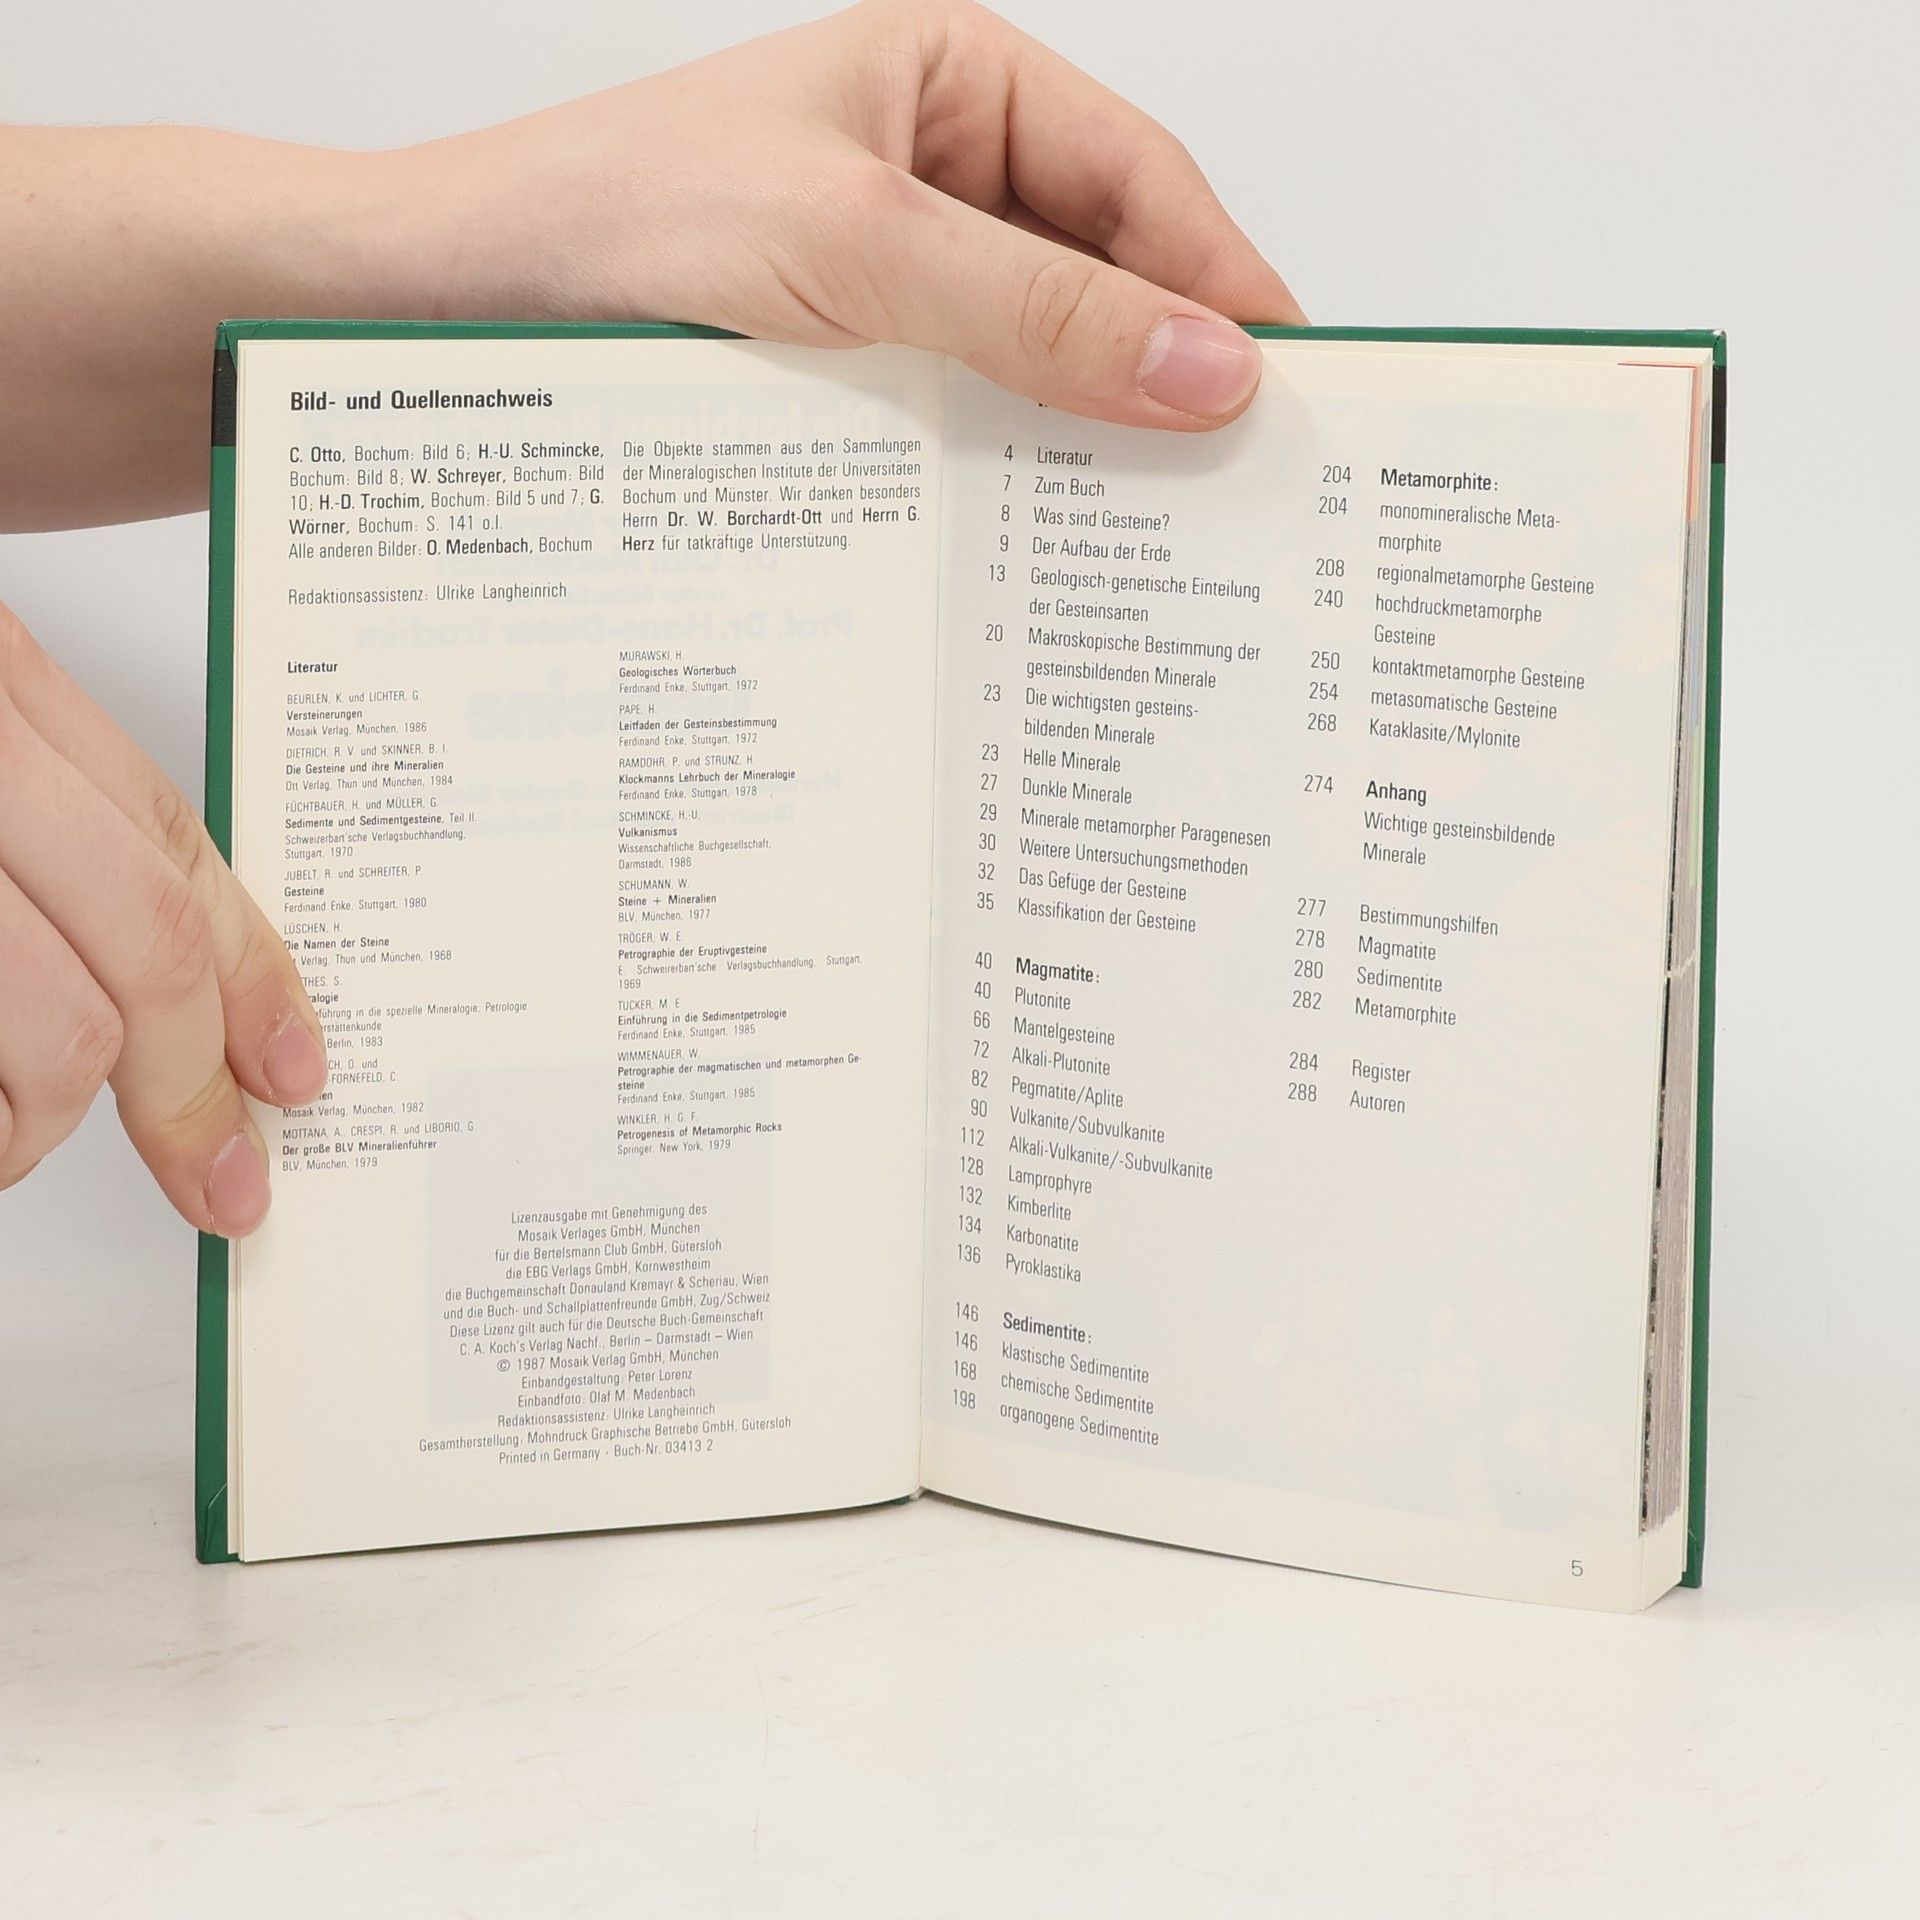 Bild- und Quellennachweis
C. Otto, Bochum: Bild 6; H.-U. Schmincke,
Bochum: Bild 8; W. Schreyer, Bochum: Bild
10; H.-D. Trochim, Bochum: Bild 5 und 7; G.
Wörner, Bochum: S. 141 o.l.
Alle anderen Bilder: O. Medenbach, Bochum
Redaktionsassistenz: Ulrike Langheinrich
Die Objekte stammen aus den Sammlungen
der Mineralogischen Institute der Universitäten
Bochum und Münster. Wir danken besonders
Herrn Dr. W. Borchardt-Ott und Herrn G.
Herz für tatkräftige Unterstützung.
Literatur
BEURLEN, K. und LICHTER, G.
Versteinerungen
Mosaik Verlag, München, 1986
DIETRICH, R. V. und SKINNER, B. I.
Die Gesteine und ihre Mineralien
Ott Verlag, Thun und München, 1984
FÜCHTBAUER, H. und MÜLLER, G.
Sedimente und Sedimentgesteine, Teil II.
Schweizerbart'sche Verlagsbuchhandlung,
Stuttgart, 1970
JUBELT, R. und SCHREITER, P.
Gesteine
Ferdinand Enke, Stuttgart, 1980
LÜSCHEN, H.
Die Namen der Steine
Verlag, Thun und München, 1968
THES, S.
ralogie
führung in die spezielle Mineralogie, Petrologie
rstättenkunde
Berlin, 1983
CH, O. und
-FORNEFELD, C.
en
Mosaik Verlag, München, 1982
MOTTANA, A., CRESPI, R. und LIBORIO, G.
Der große BLV Mineralienführer
BLV, München, 1979
MURAWSKI, H.
Geologisches Wörterbuch
Ferdinand Enke, Stuttgart, 1972
PAPE, H.
Leitfaden der Gesteinsbestimmung
Ferdinand Enke, Stuttgart, 1972
RAMDOHR, P. und STRUNZ, H.
Klockmanns Lehrbuch der Mineralogie
Ferdinand Enke, Stuttgart, 1978
SCHMINCKE, H.-U.
Vulkanismus
Wissenschaftliche Buchgesellschaft,
Darmstadt, 1986
SCHUMANN, W.
Steine + Mineralien
BLV, München, 1977
TRÖGER, W. E.
Petrographie der Eruptivgesteine
E. Schweirerbart'sche Verlagsbuchhandlung, Stuttgart,
1969
TUCKER, M. E.
Einführung in die Sedimentpetrologie
Ferdinand Enke, Stuttgart, 1985
WIMMENAUER, W.
Petrographie der magmatischen und metamorphen Ge-
steine
Ferdinand Enke, Stuttgart, 1985
WINKLER, H. G. F.
Petrogenesis of Metamorphic Rocks
Springer, New York, 1979
Lizenzausgabe mit Genehmigung des
Mosaik Verlages GmbH, München
für die Bertelsmann Club GmbH, Gütersloh
die EBG Verlags GmbH, Kornwestheim
die Buchgemeinschaft Donauland Kremayr & Scheriau, Wien
und die Buch- und Schallplattenfreunde GmbH, Zug/Schweiz
Diese Lizenz gilt auch für die Deutsche Buch-Gemeinschaft
C. A. Koch's Verlag Nachf., Berlin – Darmstadt – Wien
© 1987 Mosaik Verlag GmbH, München
Einbandgestaltung: Peter Lorenz
Einbandfoto: Olaf M. Medenbach
Redaktionsassistenz: Ulrike Langheinrich
Gesamtherstellung: Mohndruck Graphische Betriebe GmbH, Gütersloh
Printed in Germany · Buch-Nr. 03413 2
4 Literatur
7 Zum Buch
8 Was sind Gesteine?
9 Der Aufbau der Erde
13 Geologisch-genetische Einteilung
der Gesteinsarten
20 Makroskopische Bestimmung der
gesteinsbildenden Minerale
23 Die wichtigsten gesteins-
bildenden Minerale
23 Helle Minerale
27 Dunkle Minerale
29 Minerale metamorpher Paragenesen
30 Weitere Untersuchungsmethoden
32 Das Gefüge der Gesteine
35 Klassifikation der Gesteine
40 Magmatite:
40 Plutonite
66 Mantelgesteine
72 Alkali-Plutonite
82 Pegmatite/Aplite
90 Vulkanite/Subvulkanite
112 Alkali-Vulkanite/-Subvulkanite
128 Lamprophyre
132 Kimberlite
134 Karbonatite
136 Pyroklastika
146 Sedimentite:
146 klastische Sedimentite
168 chemische Sedimentite
198 organogene Sedimentite
204 Metamorphite:
204 monomineralische Meta-
morphite
208 regionalmetamorphe Gesteine
240 hochdruckmetamorphe
Gesteine
250 kontaktmetamorphe Gesteine
254 metasomatische Gesteine
268 Kataklasite/Mylonite
274 Anhang
Wichtige gesteinsbildende
Minerale
277 Bestimmungshilfen
278 Magmatite
280 Sedimentite
282 Metamorphite
284 Register
288 Autoren
5